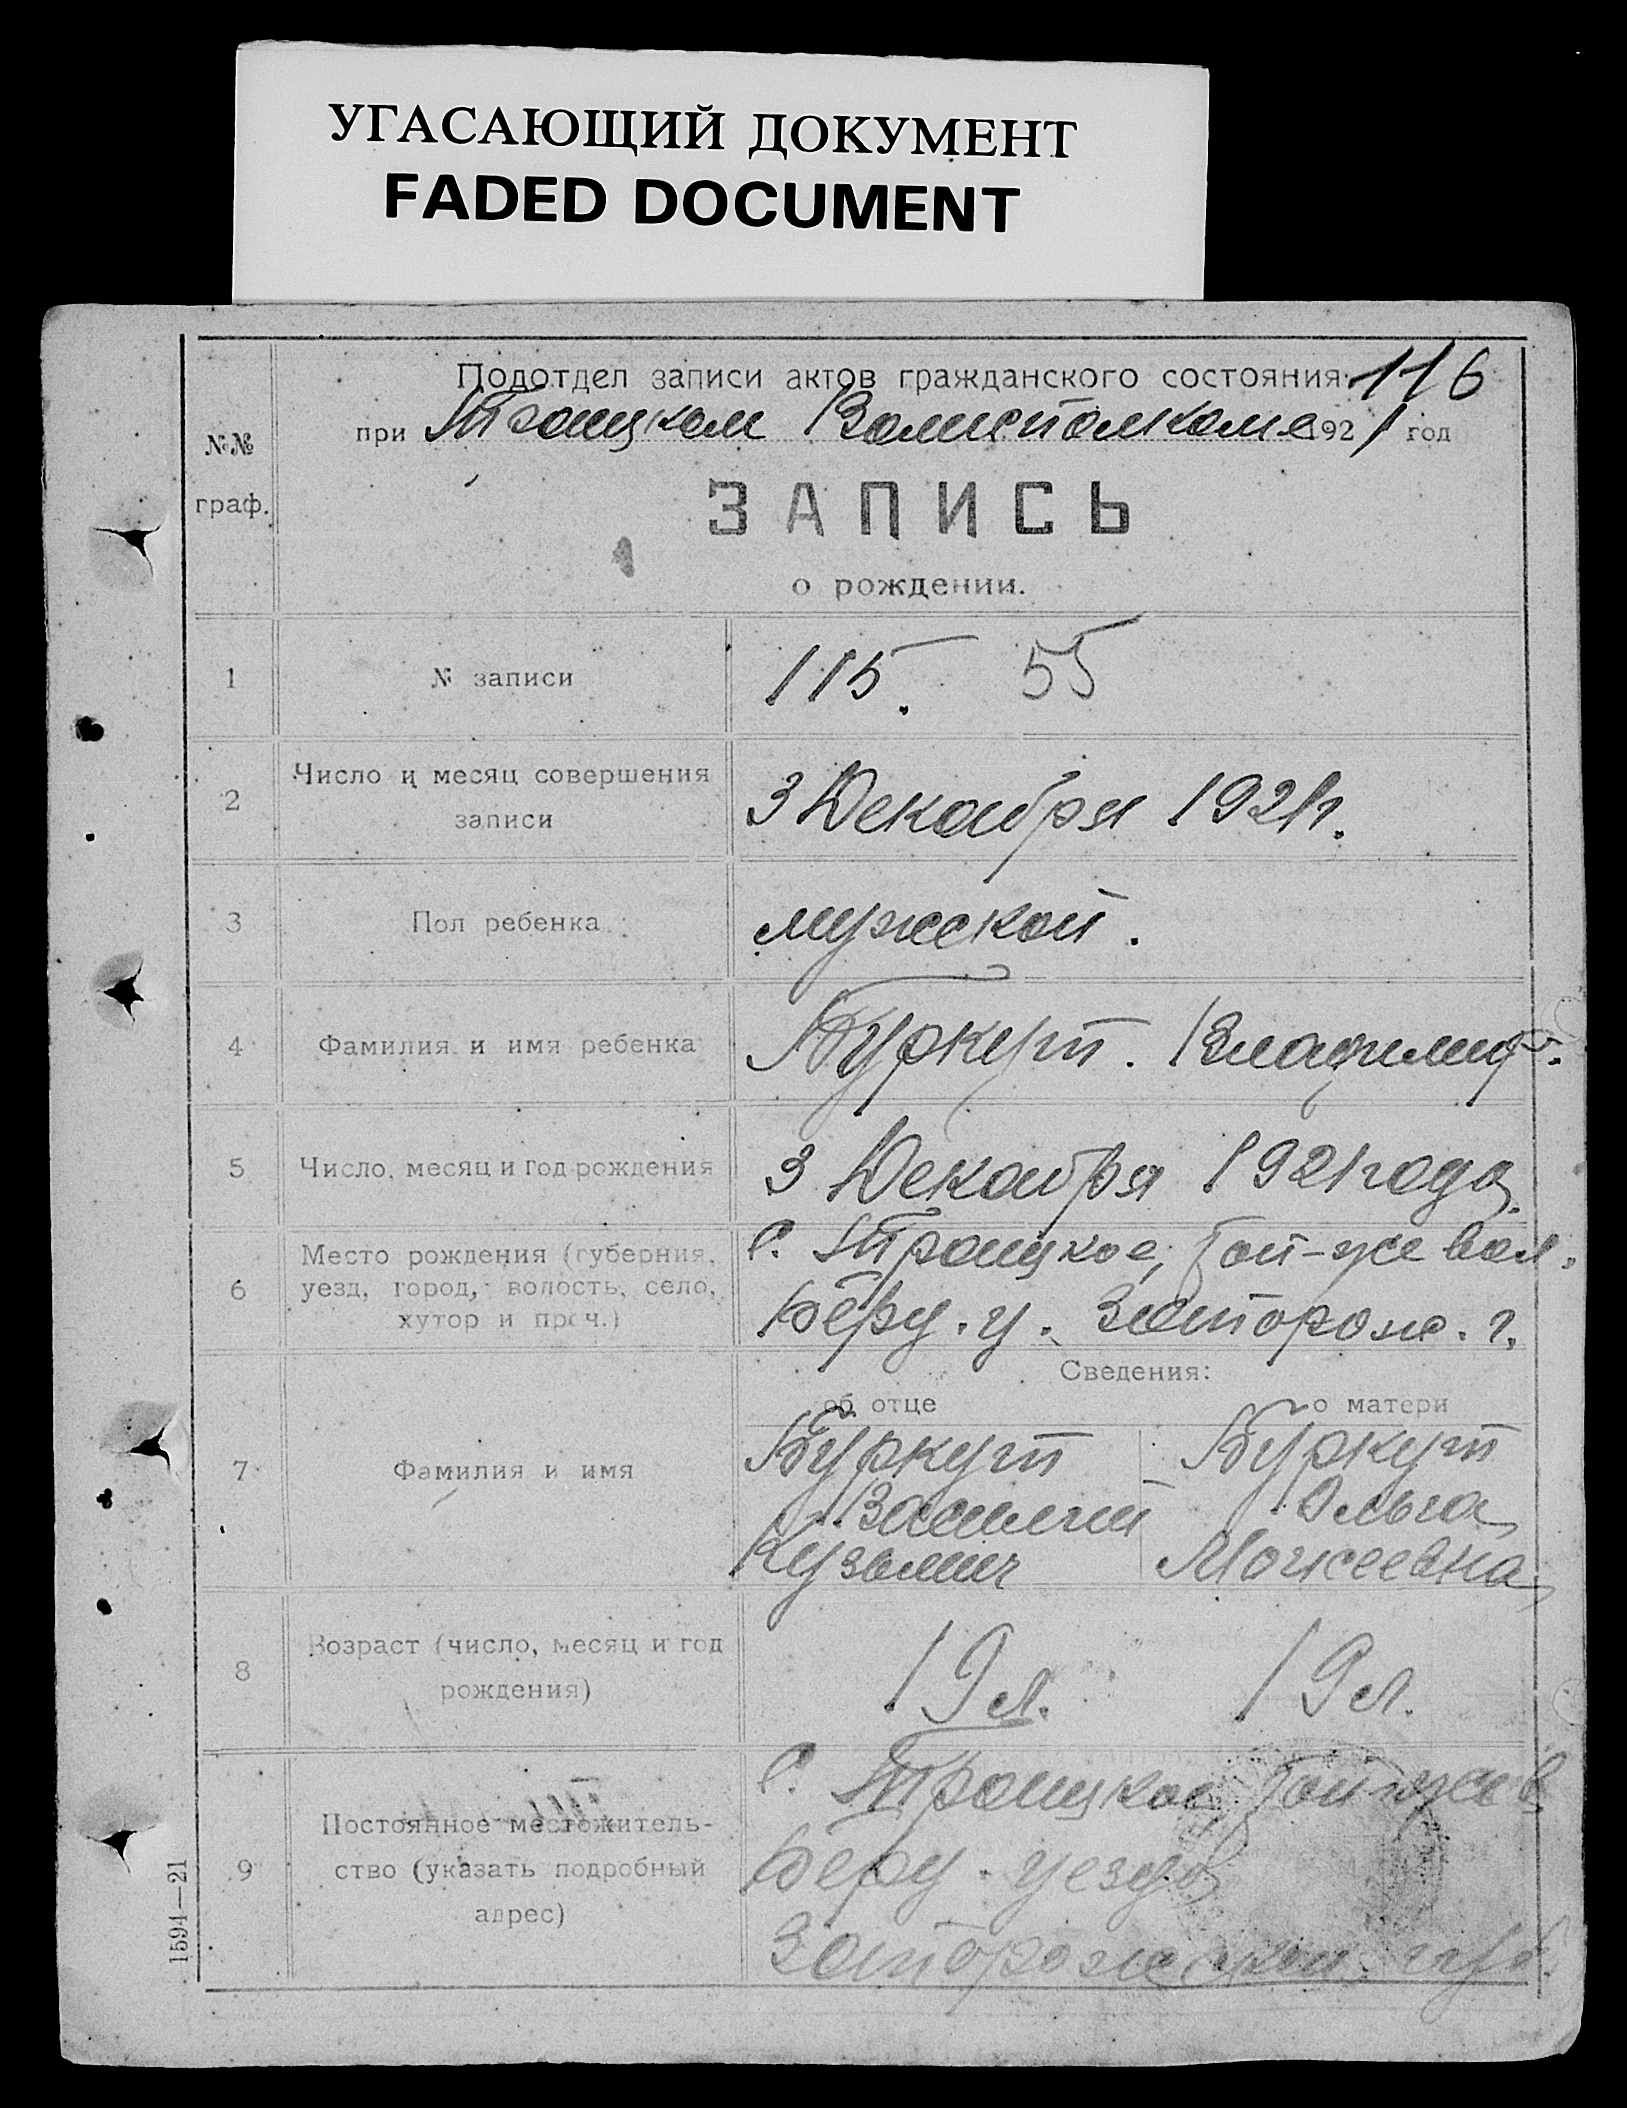 УГАСАЮЩИЙ ДОКУМЕНТ
FADED DOCUMENT
116
Подотдел записи актов гражданского состояния
при Троицком Волисполкоме 1921 год
№№
граф.
ЗАПИСЬ
о рождении.
1 № записи 115. 55
2 Число и месяц совершения
записи
3 Декабря 1921г.
3 Пол ребенка мужской.
4 Фамилия и имя ребенка Буркут. Владимир.
5 Число, месяц и год рождения 3 Декабря 1921 года
6 Место рождения (губерния,
уезд, город, волость, село,
хутор и проч.)
С. Троицкое, той-же вол.
Берд. у. Запорож. г.
Сведения:
об отце о матери
7 Фамилия и имя
Буркут Буркут
Василий Ольга
Кузьмич Моисеевна
8 Возраст (число, месяц и год
рождения)
19 л. 19 л.
9 Постоянное местожитель-
ство (указать подробный
адрес)
С. Троицкое той-же в
Берд. уезда
Запорожской губ.
1594—21